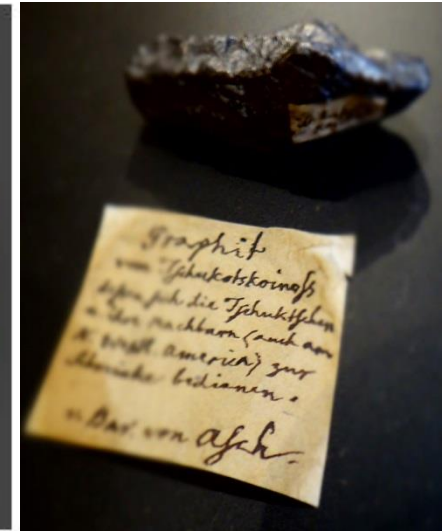 Graphit
vom Tschukotskoinoss
dessen sich die Tschuktschen
u. ihre Nachbarn (auch am
N. westl. America) zur
Schminke bedienen.
v. Bar. von Asch.